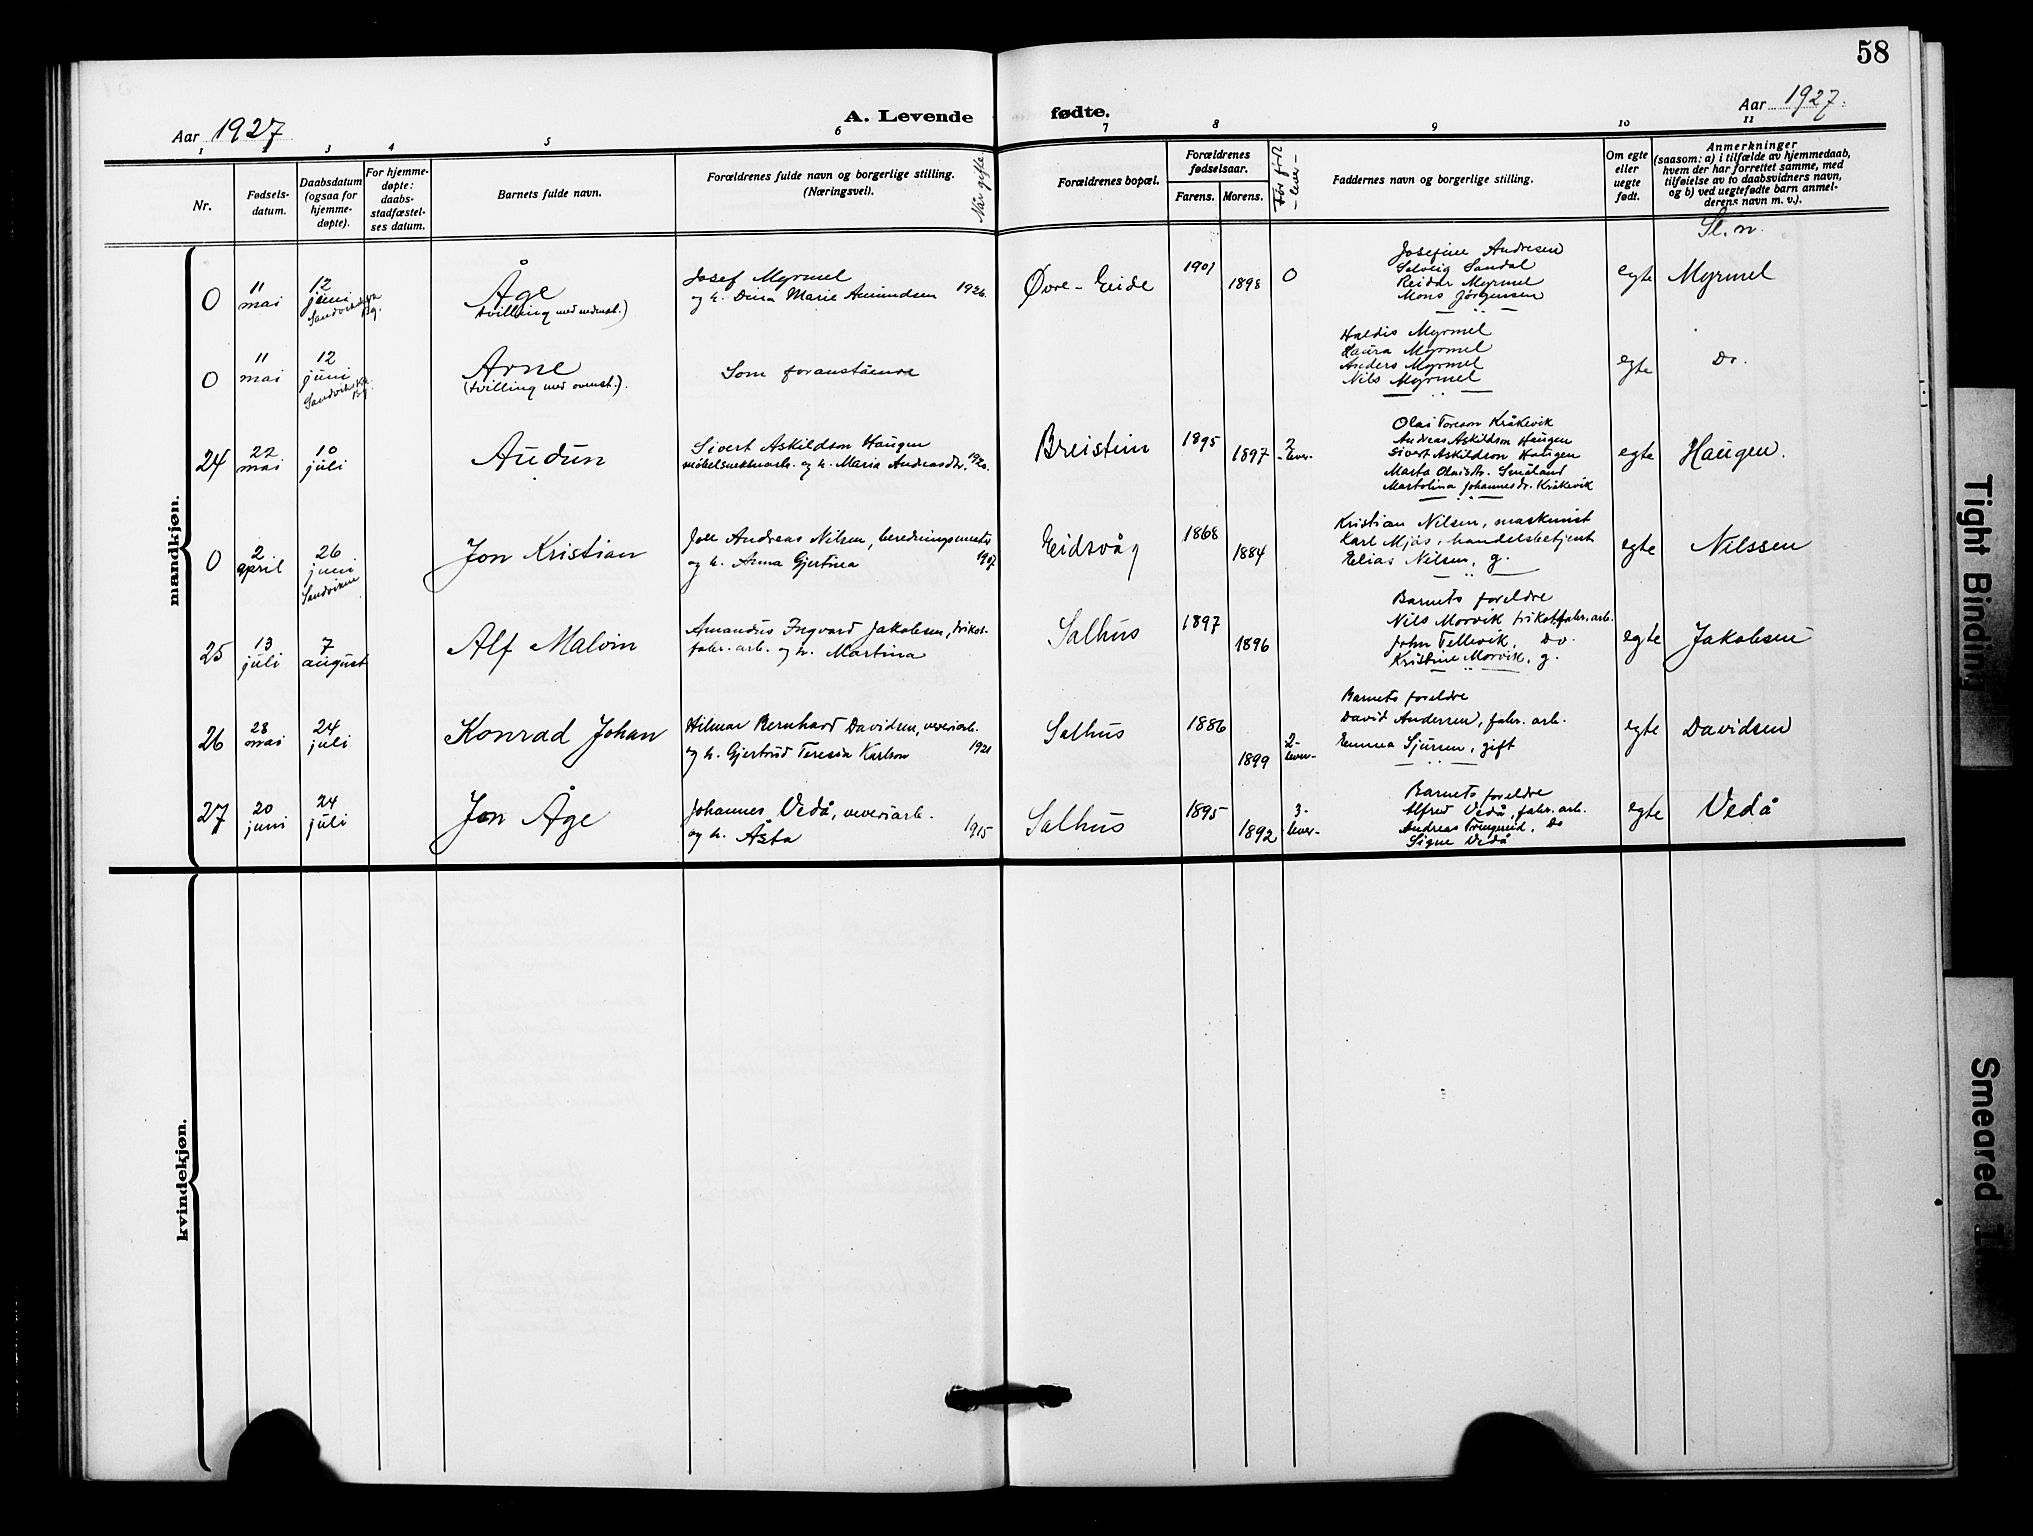 58
Aar 1927
A. Levende fødte.
Aar 1927.
1 2 3 4 5 6 7 8 9 10 11
Nr.
Fødsels-
datum.
Daabsdatum
(ogsaa for
hjemme-
døpte).
For hjemme-
døpte:
daabs-
stadfæstel-
ses datum.
Barnets fulde navn.
Forældrenes fulde navn og borgerlige stilling.
(Næringsvei).
Når gifte
Forældrenes bopæl.
Forældrenes
fødselsaar.
Farens. Morens.
Før født
- lever -
Faddernes navn og borgerlige stilling.
Om egte
eller
uegte
født.
Anmerkninger
(saasom: a) i tilfælde av hjemmedaab,
hvem der har forrettet samme, med
tilføielse av to daabsvidners navn,
og b) ved uegtefødte barn anmel-
derens navn m. v.).
Sl. n.
mandkjøn.
0
11
mai
12
juni
Åge
(tvilling med nedenst.)
Josef Myrmel
og h. Dina Marie Amundsen 1926
Øvre-Eide
1901
1898
0
Josefine Andresen
Solveig Sandal
Reidar Myrmel
Mons Jørgensen
egte
Myrmel
0
11
mai
12
juni
Arne
(tvilling med ovenst.).
Som foranstående
Haldis Myrmel
Laura Myrmel
Anders Myrmel
Nils Myrmel
egte
Do.
24
22
mai
10
juli
Audun
Sivert Askildson Haugen
og h. Maria Andreasdr. 1920
Breistein
1895
1897
2
-lever-
Olai Toreson Kråkevik
Andreas Askildson Haugen
Sivert Askildson Haugen
Marta Olaisdr. Småland
Martolina Johannesdr. Kråkevik
egte
Haugen.
0
2
april
26
juni
Sandviken
Jon Kristian
Joll Andreas Nilsen, beredningsmester
og h. Anna Gjertina 1907
Eidsvåg
1868
1884
Kristian Nilsen, maskinist
Karl Mjøs, handelsbetjent
Elias Nilsen, g.
egte
Nilssen
25
13
juli
7
august
Alf Malvin
Amandus Ingvard Jakobsen, trikot-
fabr. arb. og h. Martina
Salhus
1897
1896
Barnets foreldre
Nils Morvik trikotfabr. arb.
John Tellevik, Do.
Kristine Morvik, g.
egte
Jakobsen
26
28
mai
24
juli
Konrad Johan
Hilmar Bernhard Davidsen, veveriarb.
og h. Gjertrud Teresia Karlson 1921
Salhus
1886
1899
2-
lever-
Barnets foreldre
David Andersen, fabr. arb.
Emma Sjursen, gift
egte
Davidsen
27
20
juni
24
juli
Jon Åge
Johannes Vedå, veveriarb.
og h. Åsta 1915
Salhus
1895
1892
3-
lever-
Barnets foreldre
Alfred Vedå, fabr. arb.
Andreas Do
Signe Vedå
egte
Vedå
kvindekjøn.
Tight Binding
Smeared